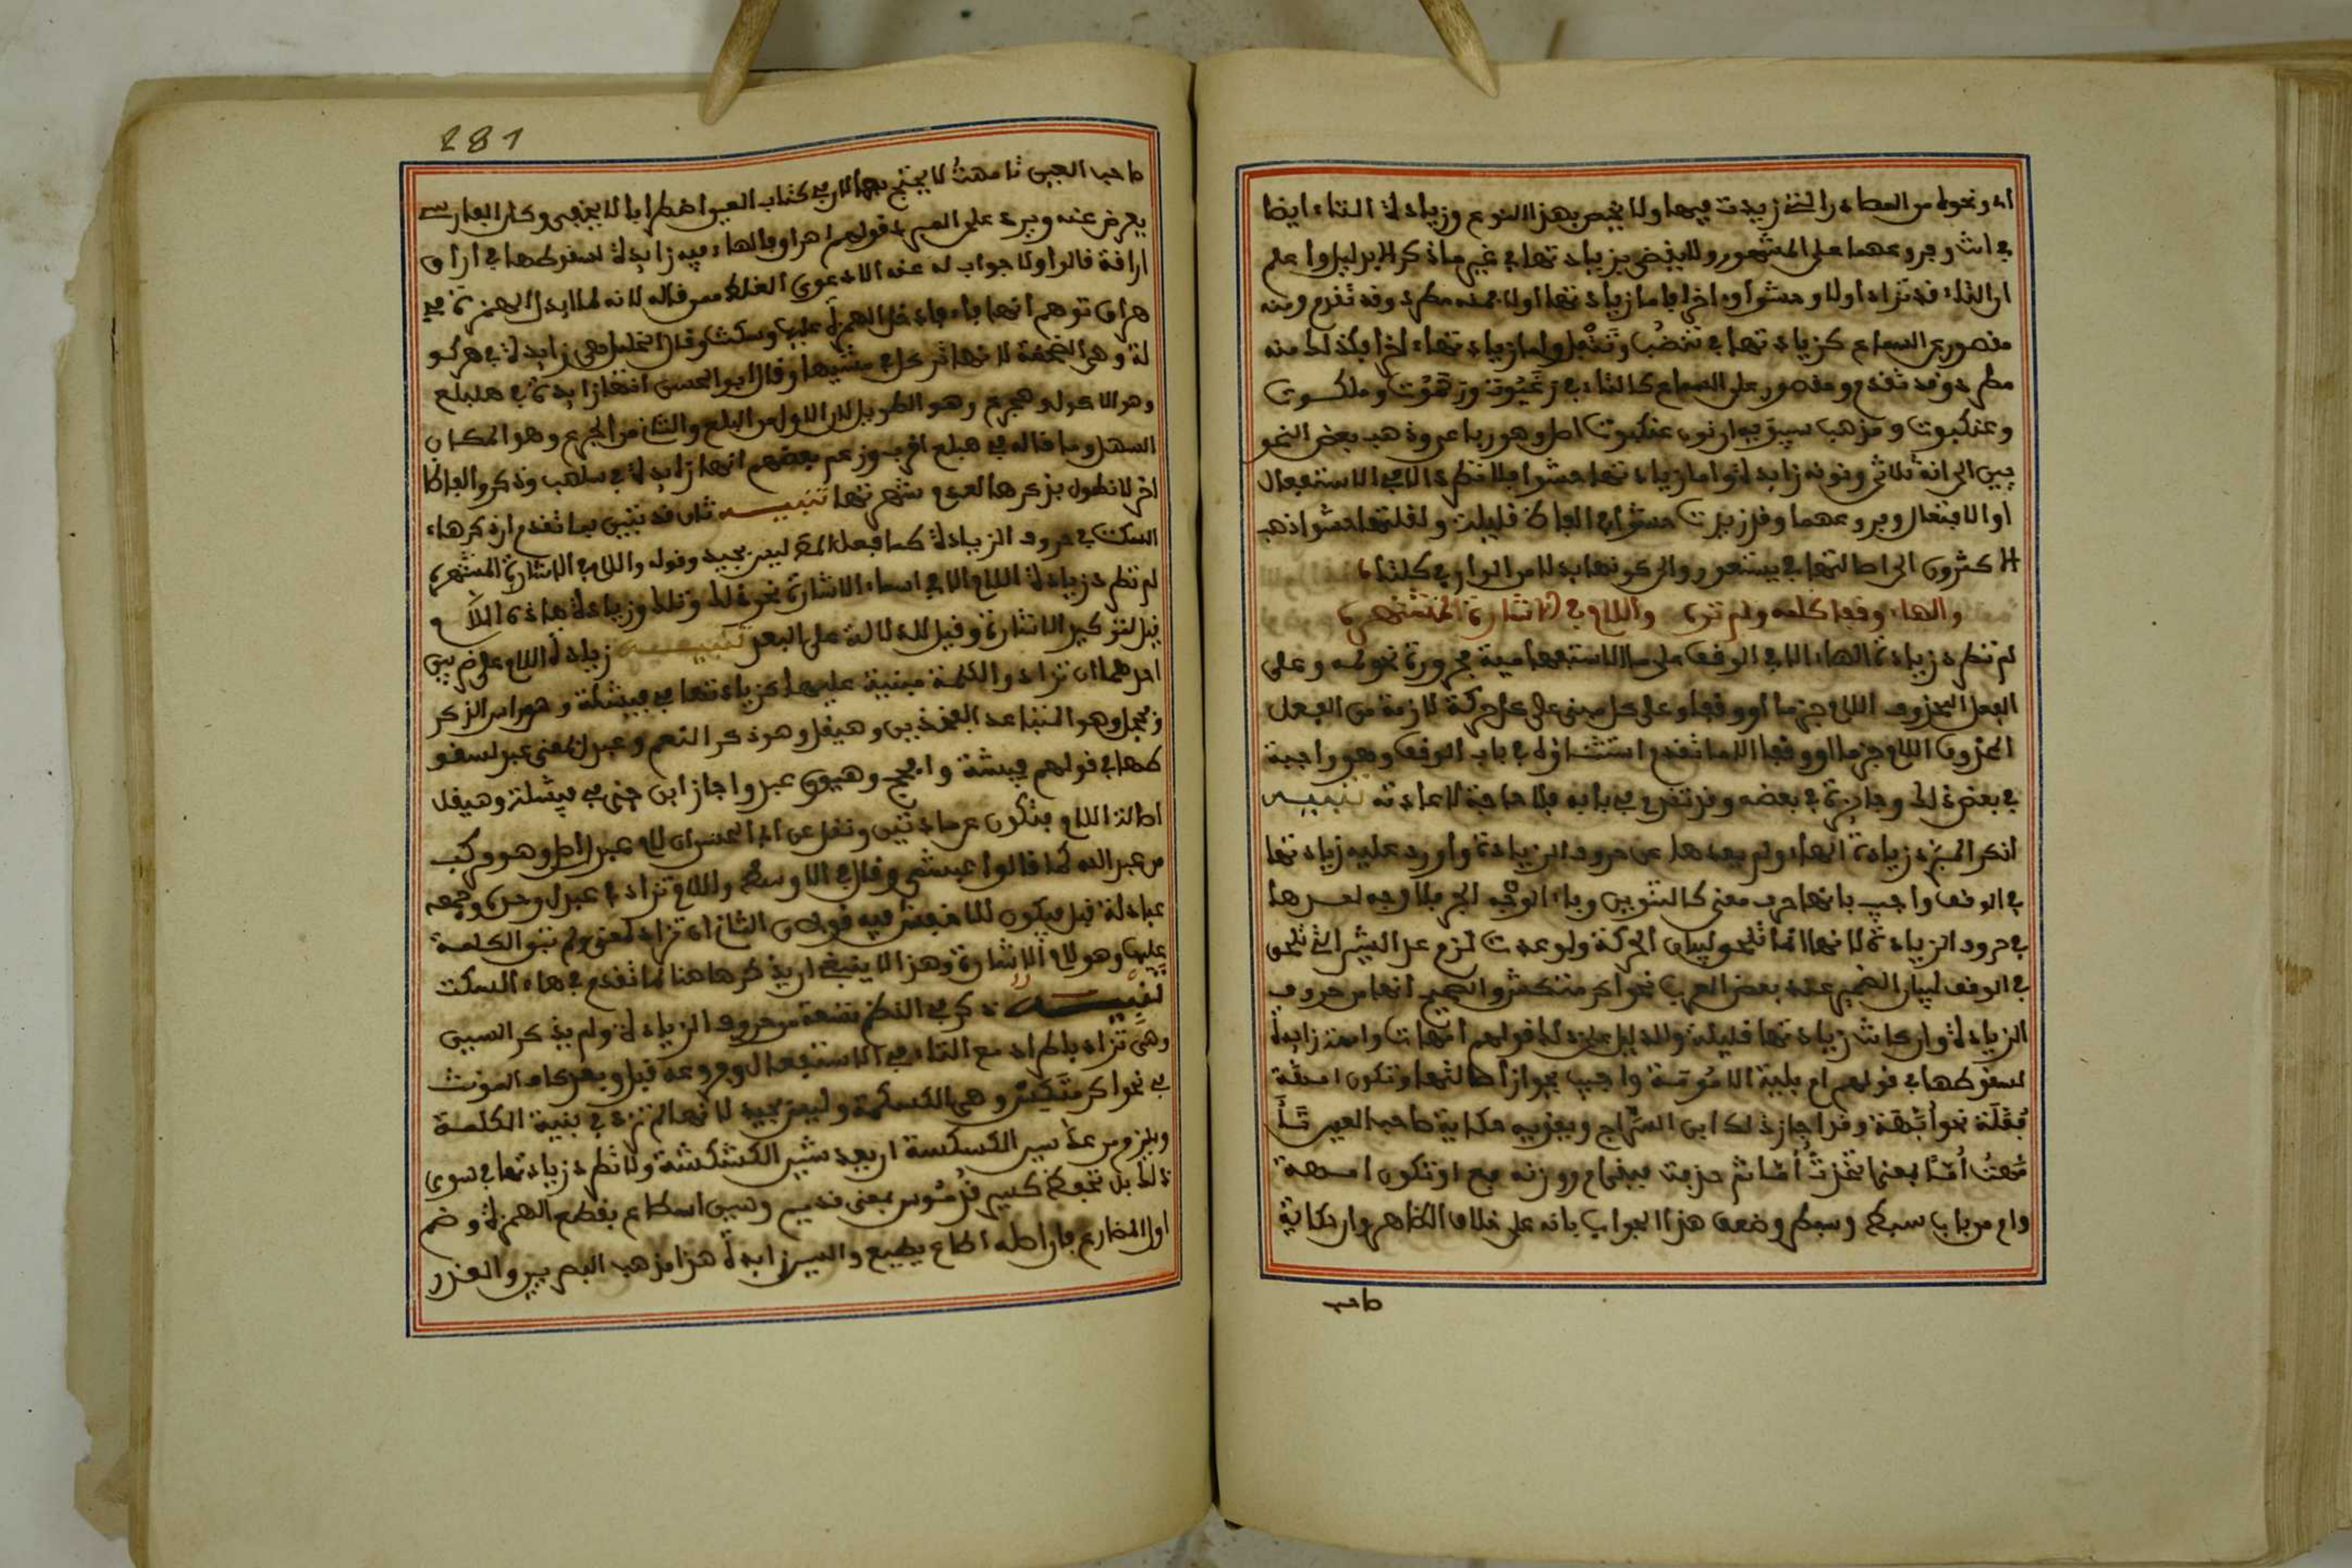 اد ونحوه من المصادر التي زيدت فيها ولا يختص بهذا النوع وزيادة التاء ايضا
في انت وفروعهما على المشهور ولا يقضى بزيادتها في غير ما ذكر الا بدليل واعلم
ان التاء قد تزاد اولا وحشوا واخرا فاما زيادتها اولا فمنه مطرد وقد تقدم ومنه
مقصور على السماع كزيادتها في تنضب وتتفل واما زيادتها اخرا فكذلك منه
مطرد وقد تقدم ومقصور على السماع كالتاء في رغبوت ورهبوت وملكوت
وعنكبوت ومذهب سيبويه ان نون عنكبوت اصل وهو رباعي وذهب بعض النحو
يين الى انه ثلاثي ونونه زايدة واما زيادتها حشوا فلا تطرد الا في الاستفعال
او الافتعال وفروعهما وقد زيدت حشوا في الفاظ قليلة ولقلتها حشوا ذهب
الاكثرون الى اصالتها في يستعور والى كونها بدلا من الواو في كلتا
والهاء وقفا كلمه ولم تره واللام في الاشارة المشتهره
لم تطرد زيادة الهاء الا في الوقف على ما الاستفهامية مجرورة نحو لمه وعلى
الفعل المحذوف اللام جزما او وقفا وعلى كل مبني على حركة لازمة من الفعل
المحذوف اللام جزما او وقفا الا ما تقدم استثناؤه في باب الوقف وهو واجبة
في بعض ذلك وجايزة في بعضه وقد تقدم في بابه فلا حاجة لاعادته تنبيه
انكر المبرد زيادة الهاء ولم يعدها من حروف الزيادة واورد عليه زيادتها
في الوقف واجيب بانها حرف معنى كالتنوين وباء الجر فلا وجه لعدها
في حروف الزيادة لانها انما تلحق لبيان الحركة ولو عدت لزم عد الشين التي تلحق
في الوقف لبيان الضمير عند بعض العرب نحو اكرمتكش والصحيح انها من حروف
الزيادة وان كانت زيادتها قليلة والدليل على ذلك قولهم امهات وامهة زايدة
لسقوطها في قولهم ام بينة الامومة واجيب بجواز اصالتها وتكون امهة
فعلة نحو ابهة وقد اجاز ذلك ابن السراج ويقويه حكاية صاحب العين تأ
مهت اما بمعنى اتخذت اما ثم حذفت فبقي ام ووزنه فع او تكون امهة
وام من باب سبط وسبطر وضعف هذا الجواب بانه على خلاف الظاهر وان حكاية
صاحب
281
صاحب العين تامهت لا يحتج بها لان في كتاب العين اضطرابا لا يخفى وكان الفارسي
يعرض عنه ويرد على المبرد قولهم اهراق فالهاء فيه زايدة لسقوطها في اراق
اراقة قالوا ولا جواب له عنه الا دعوى الغلط ممن قاله لانه لما ابدل الهمزة في
هراق توهم انها فاء فادخل الهمزة عليها وسكنت وقال الخليل هي زايدة في هركو
لة وهي الضخمة لانها تركل في مشيها وقال ابو الحسن انها زايدة في هبلع
وهو الاكول وهجرع وهو الطويل لان الاول من البلع والثاني من الجرع وهو المكان
السهل وما قاله في هبلع اقرب وزعم بعضهم انها زايدة في سلهب وذكروا الفاظا
اخر لا نطول بذكرها لعدم شهرتها تنبيه ثان قد تبين بما تقدم ان ذكر هاء
السكت في حروف الزيادة كما فعل الناظم ليس بجيد وقوله واللام في الاشارة المشتهره
لم تطرد زيادة اللام الا في اسماء الاشارة نحو ذلك وتلك وزيادة هاذه اللام
قيل لتوكيد الاشارة وقيل للدلالة على البعد تنبيه زيادة اللام على ضربين
احدهما ان تزاد والكلمة مبنية عليها كزيادتها في فيشلة وهو راس الذكر
وفحجل وهو المتباعد الفخذين وهيقل وهو ذكر النعم وعبدل بمعنى عبد لسقو
طها في قولهم فيشة وافحج وهيق وعبد واجاز ابن جني في فيشلة وهيقل
اصالة اللام فتكون من مادتين ونقل عن ابي الحسن ان لام عبدل اصل وهو مركب
من عبد الله كما قالوا عبشمي وقال في الاوسط واللام تزاد في عبدل وحده وجمعه
عبادلة قيل فيكون للاخفش فيه قولان الثاني ان تزاد لمعنى ولم تبن الكلمة
عليها وهو لام الاشارة وهذا لا ينبغي ان يذكرها هنا لما تقدم في هاء السكت
تنبيه ذكر في النظم تسعة من حروف الزيادة ولم يذكر السين
وهي تزاد باطراد مع التاء في الاستفعال وفروعه قيل وبعد كاف المونث
في نحو اكرمتكس وهي الكسكسة وليس بجيد لانها لم تزد في بنية الكلمة
ويلزم من عد سين الكسكسة ان يعد شين الكشكشة ولا تطرد زيادتها في سوى
ذلك بل تحفظ كسين قدموس بمعنى قديم وسين اسطاع بقطع الهمزة وضم
اول المضارع فان اصله اطاع يطيع والسين زايدة هذا مذهب البصريين والعذر